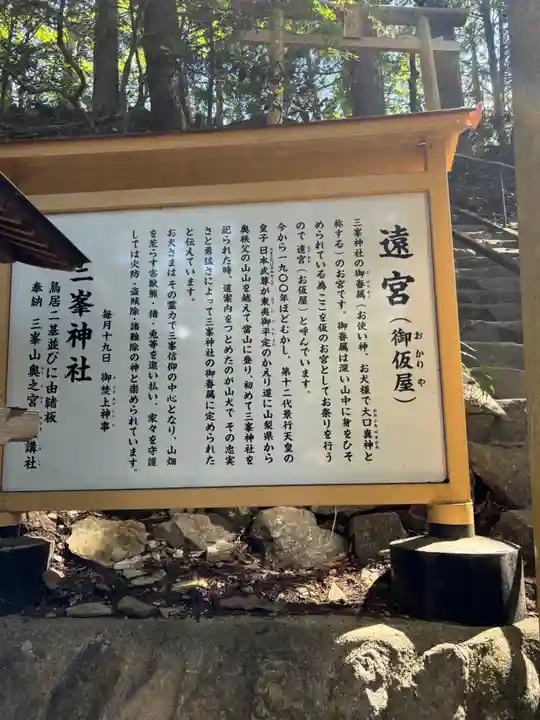 遠宮（御仮屋）
おかりや
三峯神社の御眷属（お使い神、お犬様で大口真神と
称する）のお宮です。御眷属は深い山中に身をひそ
められている為ここを仮のお宮としてお祭りを行う
ので遠宮（お仮屋）と呼んでいます。
今から一九〇〇年ほどむかし、第十二代景行天皇の
皇子日本武尊が東夷御平定のかえり道に山梨県から
奥秩父の山山を越えて當山に登り、初めて三峯神社を
祀られた時、道案内をつとめたのが山犬で その忠実
さと勇猛さによって三峯神社の御眷属に定められた
と伝えています。
お犬さまはその霊力で三峯信仰の中心となり、山畑
を荒らす害獣熊・猪・兎等を追い払い、家々を守護
しては火防・盗賊除・諸難除の神と崇められています。
毎月十九日 御焚上神事
三峯神社
鳥居二基並びに由緒板
奉納 三峯山奥之宮 講社